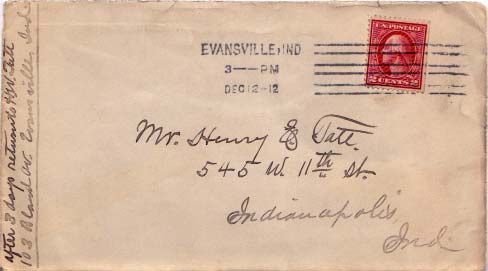 EVANSVILLE, IND
3 — PM
DEC 12-12
U.S. POSTAGE
2 CENTS 2
Mr. Henry E Tate.
545 W. 11th St.
Indianapolis,
Ind.
after 3 days return to Tate
103 Bland Av. Evansville, Ind.